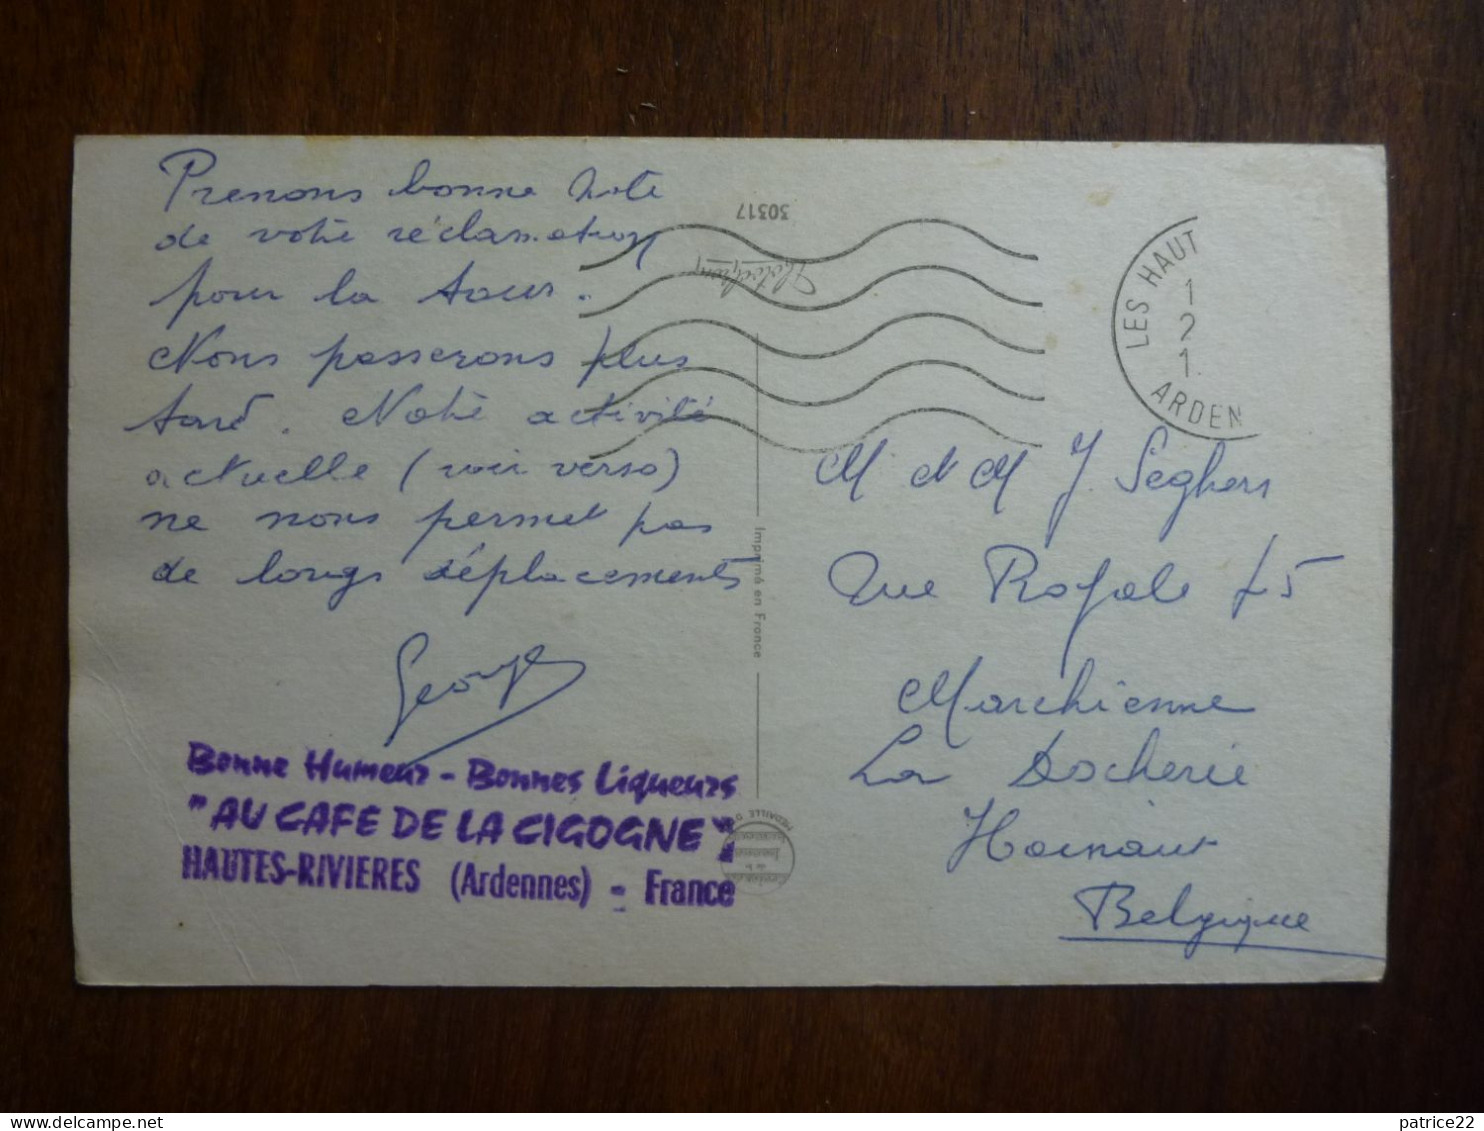 Prenons bonne note
de votre réclamation
pour la sœur.
Nous passerons plus
tard. Notre activité
actuelle (voir verso)
ne nous permet pas
de longs déplacements
Bonne Humeur - Bonnes Liqueurs
"AU CAFE DE LA CIGOGNE"
HAUTES-RIVIERES (Ardennes) - France
30317
Imprimé en France
MEDAILLE D
LES HAUT
1
2
1.
ARDEN
M et M J. Seghers
Rue Royale 75
Marchienne
La Docherie
Hainaut
Belgique
patrice22